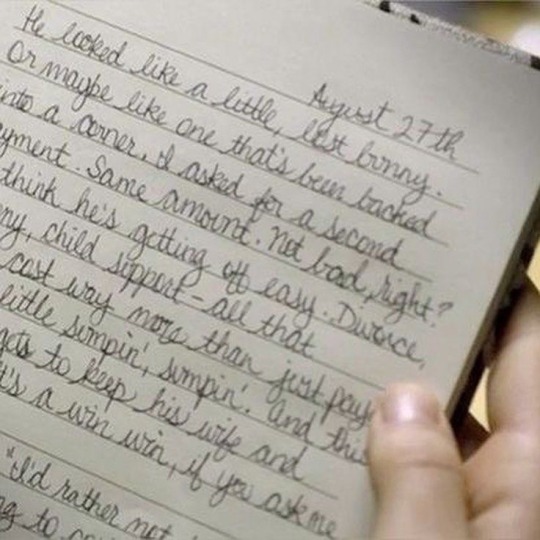 August 27th
He looked like a little, lost bunny.
Or maybe like one that's been backed
into a corner. I asked for a second
ayment. Same amount. Not bad, right?
think he's getting off easy. Divorce,
ny, child support - all that
cost way more than just
little sumpin', sumpin'. And this
gets to keep his wife and
t's a win win, if you ask me
"I'd rather not
ng to